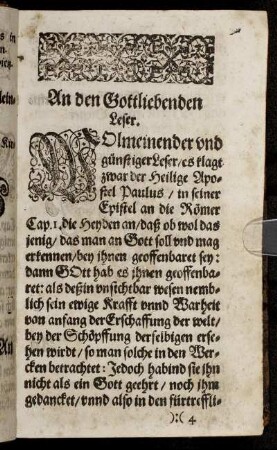 An den Gottliebenden
Leser.
WOlmeinender vnd
günstiger Leser / es klagt
zwar der Heilige Apo-
stel Paulus / in seiner
Epistel an die Römer
Cap. 1. die Heyden an / daß ob wol das
jenig / das man an Gott soll vnd mag
erkennen / bey ihnen geoffenbaret sey:
dann GOtt hab es ihnen geoffenba-
ret: als deßin vnsichtbar wesen nemb-
lich sein ewige Krafft vnnd Warheit
von anfang der Erschaffung der welt /
bey der Schöpffung derselbigen erse-
hen wirdt / so man solche in den Wer-
cken betrachtet: Jedoch habind sie ihn
nicht als ein Gott geehrt / noch ihm
gedancket / vnnd also in den fürtreffli-
):( 4